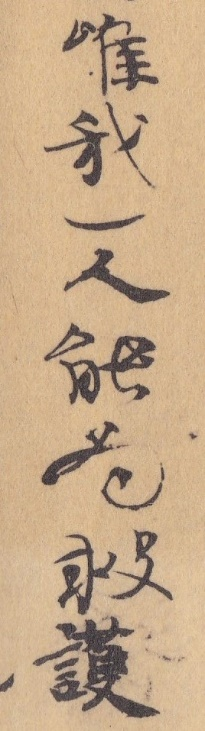 唯我一人能為救護